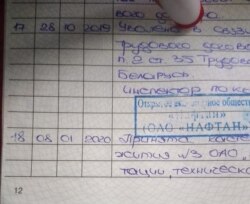 вого дого
17 28 10 2019 Уволена в связи
Трудового догов
п.2 ст. 35 Трудов
Беларусь.
Инспектор по ка
Открытое акционерное общество
(ОАО «НАФТАН»
18 08 01 2020 Принята
жития №3 ОАО „
тации техническо
12